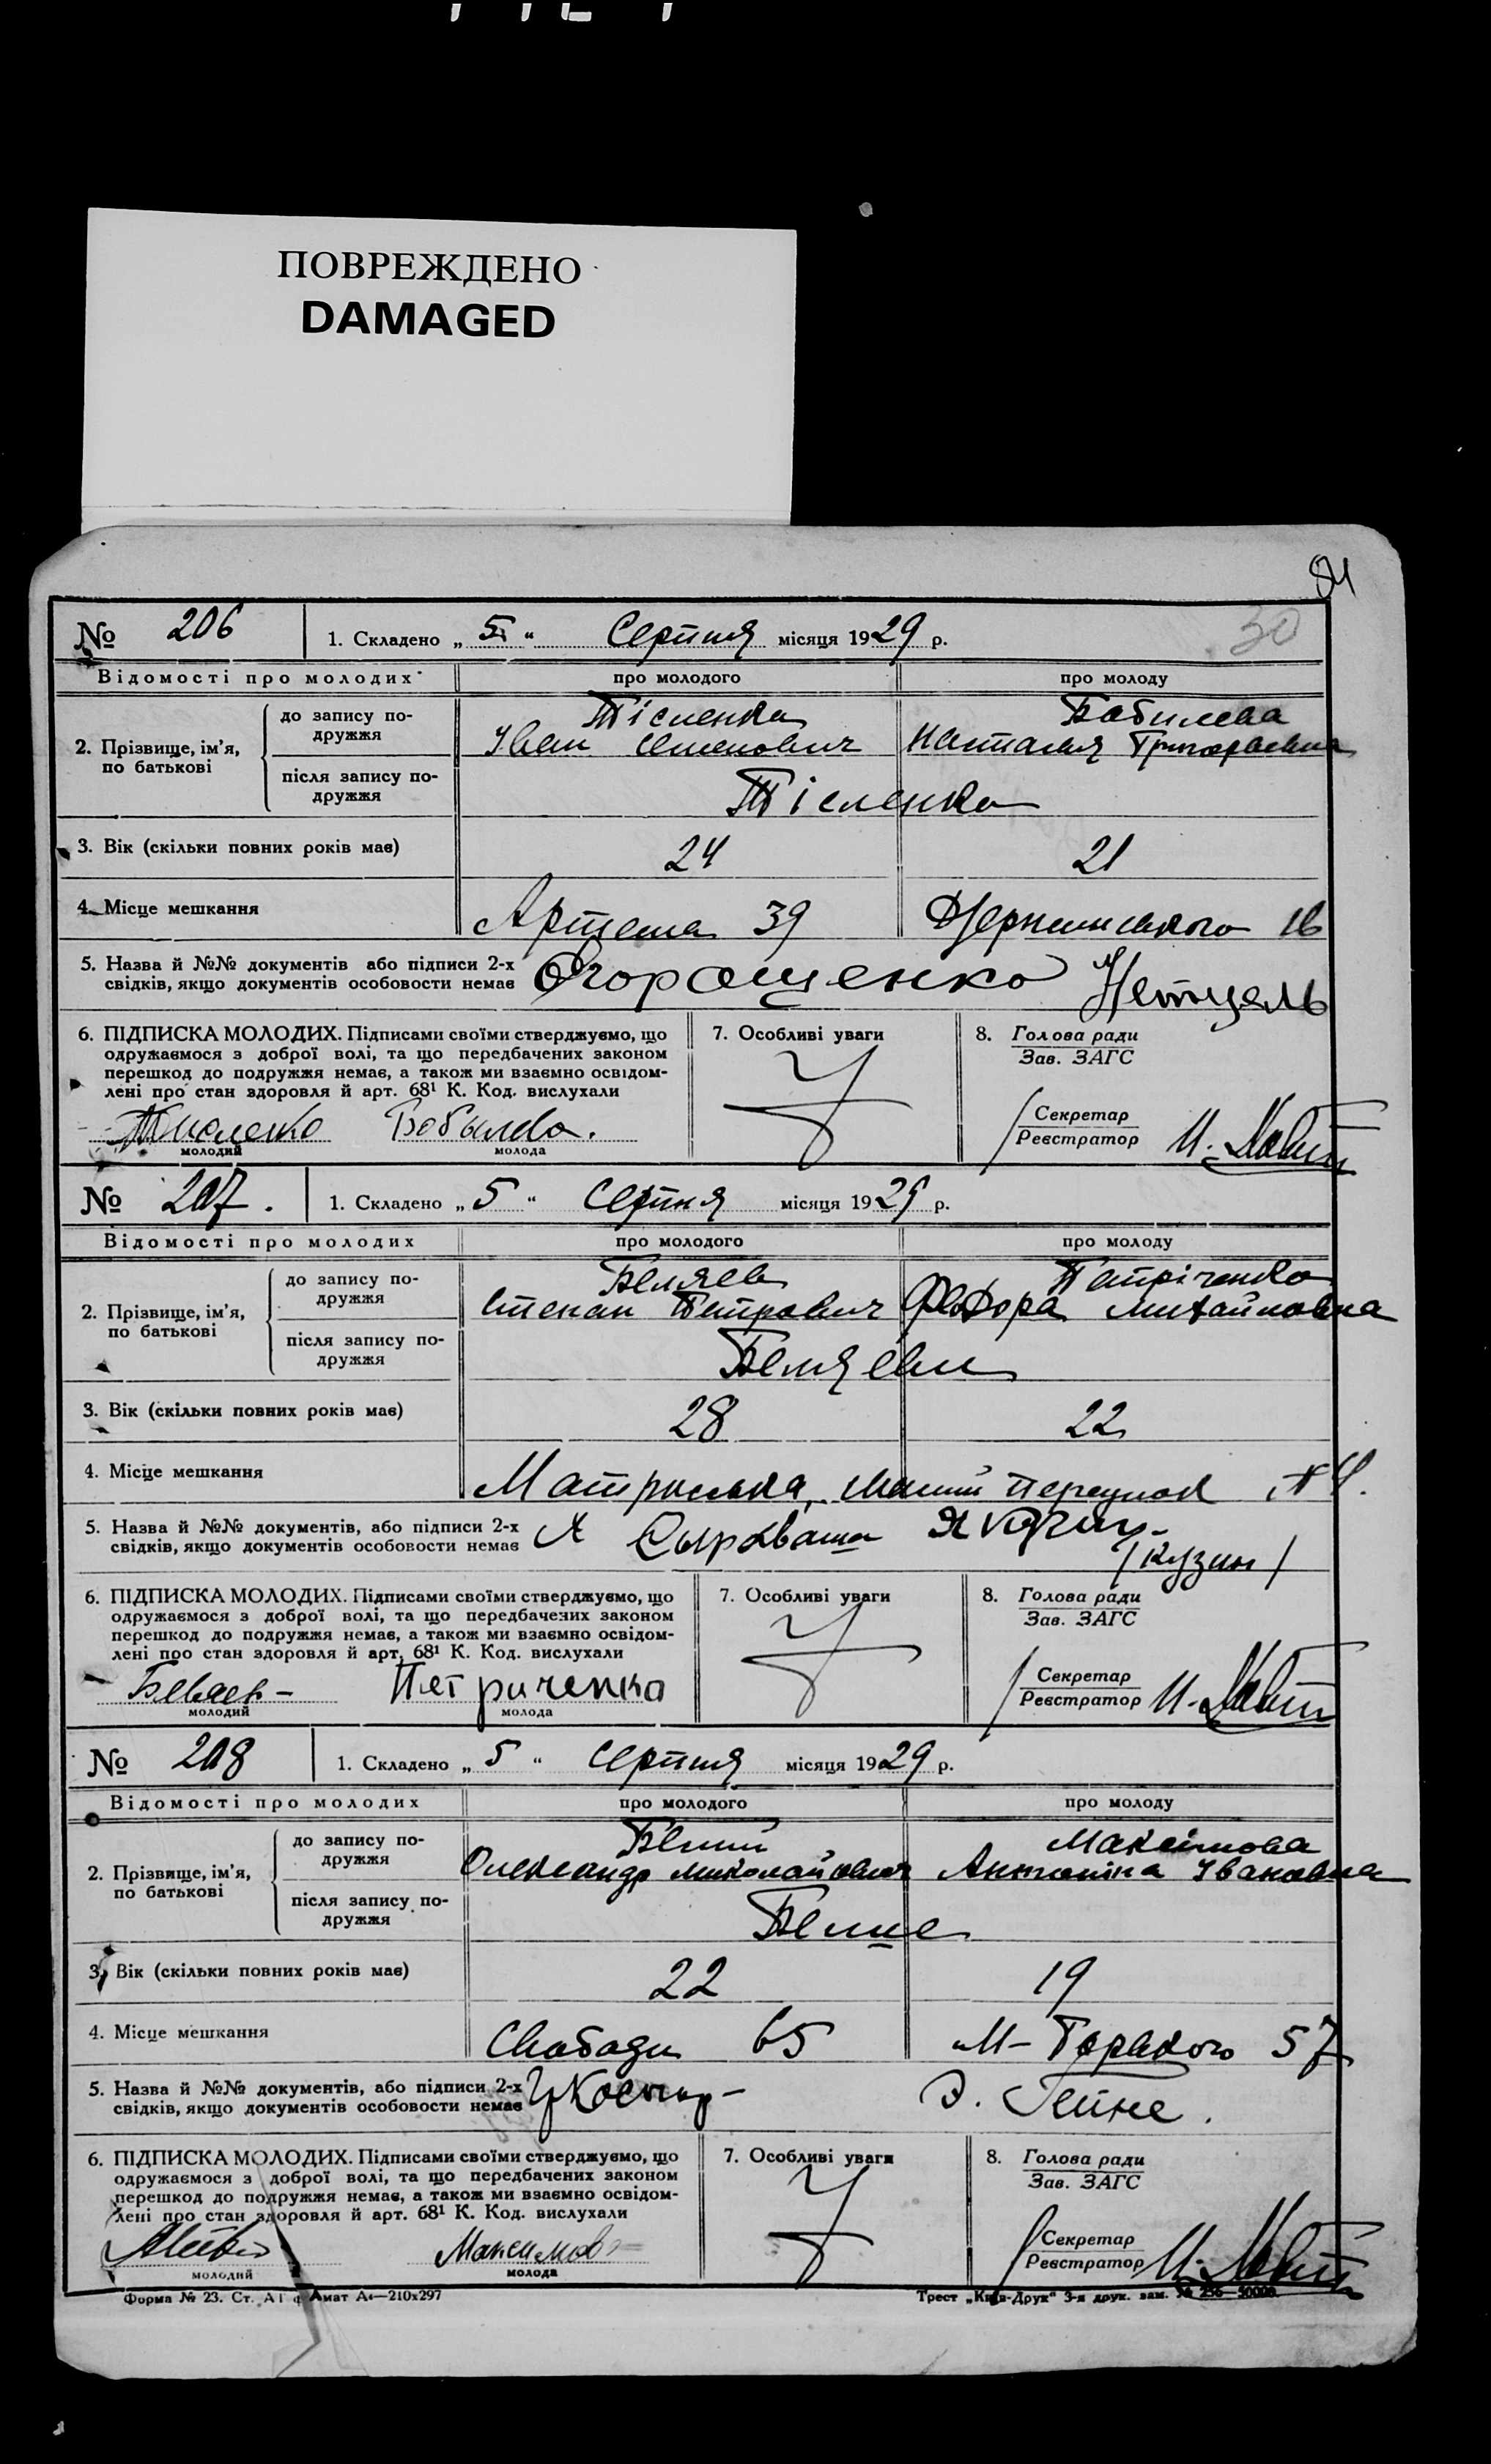 ПОВРЕЖДЕНО
DAMAGED
84
30
№ 206 1. Складено „ 5 “ Серпня місяця 1929 р.
Відомості про молодих про молодого про молоду
2. Прізвище, ім’я, по батькові
до запису подружжя
Тісленко Бабилева
Іван Семенович Наталія Григораевна
після запису подружжя
Тісленко
3. Вік (скільки повних років має) 24 21
4. Місце мешкання Артема 39 16
5. Назва й №№ документів або підписи 2-х
свідків, якщо документів особовости немає
Нетцель
6. ПІДПИСКА МОЛОДИХ. Підписами своїми стверджуємо, що
одружаємося з доброї волі, та що передбачених законом
перешкод до подружжя немає, а також ми взаємно освідом-
лені про стан здоровля й арт. 68¹ К. Код. вислухали
7. Особливі уваги
8. Голова ради
Зав. ЗАГС
Секретар
Реєстратор
Бобылева.
молодий молода
№ 207. 1. Складено „ 5 “ Серпня місяця 1929 р.
Відомості про молодих про молодого про молоду
2. Прізвище, ім’я, по батькові
до запису подружжя
Беляев Петріченко
Степан Петрович Федора Михайловна
після запису подружжя
Беляеви
3. Вік (скільки повних років має) 28 22
4. Місце мешкання
5. Назва й №№ документів, або підписи 2-х
свідків, якщо документів особовости немає
/Кузин/
6. ПІДПИСКА МОЛОДИХ. Підписами своїми стверджуємо, що
одружаємося з доброї волі, та що передбачених законом
перешкод до подружжя немає, а також ми взаємно освідом-
лені про стан здоровля й арт. 68¹ К. Код. вислухали
7. Особливі уваги
8. Голова ради
Зав. ЗАГС
Секретар
Реєстратор
Петриченко
молодий молода
№ 208 1. Складено „ 5 “ Серпня місяця 1929 р.
Відомості про молодих про молодого про молоду
2. Прізвище, ім’я, по батькові
до запису подружжя
Белий Максімова
Олександр Миколайович Антоніна Івановна
після запису подружжя
Белие
3. Вік (скільки повних років має) 22 19
4. Місце мешкання Свободи 65 М-Горького 57
5. Назва й №№ документів, або підписи 2-х
свідків, якщо документів особовости немає
Э. Гейне.
6. ПІДПИСКА МОЛОДИХ. Підписами своїми стверджуємо, що
одружаємося з доброї волі, та що передбачених законом
перешкод до подружжя немає, а також ми взаємно освідом-
лені про стан здоровля й арт. 68¹ К. Код. вислухали
7. Особливі уваги
8. Голова ради
Зав. ЗАГС
Секретар
Реєстратор
Максимова
молодий молода
Форма № 23. Ст. А1 ф Амат А4—210х297 Трест „Київ-Друк“ 3-я друк. зам. № 256—50000.